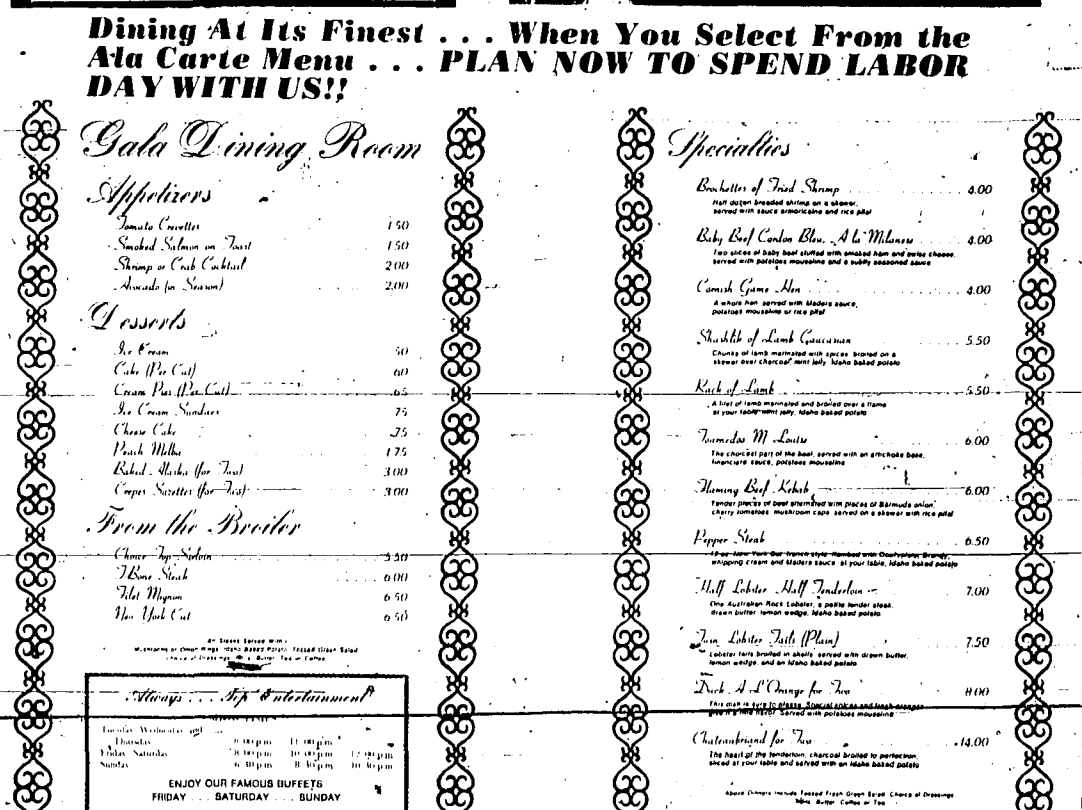 Dining At Its Finest . . . When You Select From the
Ala Carte Menu . . . PLAN NOW TO SPEND LABOR
DAY WITH US!!
Gala Dining Room
Appetizers
Tomato Crevettes 1.50
Smoked Salmon on Toast 1.50
Shrimp or Crab Cocktail 2.00
Avocado (in Season) 2.00
Desserts
Ice Cream .50
Cake (Per Cut) .60
Cream Pies (Per Cut) .65
Ice Cream Sundaes .75
Cheese Cake .75
Peach Melba 1.75
Baked Alaska (for Two) 3.00
Crepes Suzettes (for Two) 3.00
From the Broiler
Choice Top Sirloin 5.50
T-Bone Steak 6.00
Filet Mignon 6.50
New York Cut 6.50
All Steaks Served With:
Mushrooms or Onion Rings, Idaho Baked Potato, Tossed Green Salad
Choice of Dressings, Butter, Tea or Coffee
Always . . . Top Entertainment
Tuesday, Wednesday and
Thursday 9:00 pm 11:00 pm
Friday, Saturday 8:00 pm 10:00 pm 12:00 pm
Sunday 6:30 pm 8:30 pm 10:30 pm
ENJOY OUR FAMOUS BUFFETS
FRIDAY . . . SATURDAY . . . SUNDAY
Specialties
Brochettes of Fried Shrimp 4.00
Half dozen breaded shrimp on a skewer,
served with sauce armoricaine and rice pilaf
Baby Beef Cordon Bleu, A la Milanese 4.00
Two slices of baby beef stuffed with smoked ham and swiss cheese,
served with potatoes mouseline and a subtly seasoned sauce
Cornish Game Hen 4.00
A whole hen served with Madera sauce,
potatoes mouseline or rice pilaf
Shashlik of Lamb Caucasian 5.50
Chunks of lamb marinated with spices, broiled on a
skewer over charcoal, mint jelly, Idaho baked potato
Rack of Lamb 5.50
A filet of lamb marinated and broiled over a flame
at your table, mint jelly, Idaho baked potato
Tournedos M. Louise 6.00
The choicest part of the beef, served with an artichoke base,
financiere sauce, potatoes mouseline
Flaming Beef Kebab 6.00
Tender pieces of beef alternated with pieces of Bermuda onion,
cherry tomatoes, mushroom caps, served on a skewer with rice pilaf
Pepper Steak 6.50
12 oz. New York Cut french style, flambed with Courvoisier Brandy,
whipping cream and Madera sauce, at your table, Idaho baked potato
Half Lobster Half Tenderloin 7.00
One Australian Rock Lobster, a petite tender steak,
drawn butter, lemon wedge, Idaho baked potato
Twin Lobster Tails (Plain) 7.50
Lobster tails broiled in shells, served with drawn butter,
lemon wedge, and an Idaho baked potato
Duck A L'Orange for Two 8.00
This dish is sure to please. Special spices and fresh oranges
give it a fine flavor. Served with potatoes mouseline
Chateaubriand for Two 14.00
The heart of the tenderloin, charcoal broiled to perfection,
sliced at your table and served with an Idaho baked potato
Above Dinners Include Tossed Fresh Green Salad, Choice of Dressings
Butter, Coffee or Tea